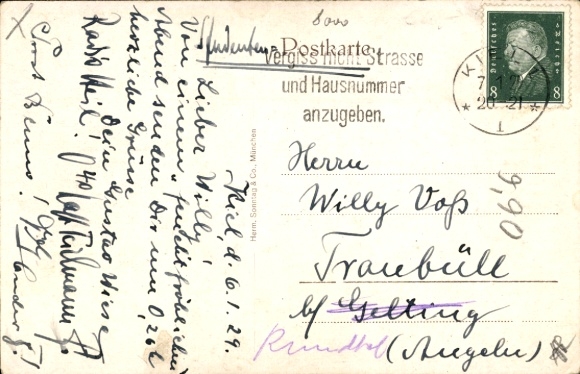 8000
Studenten-Postkarte
Vergiss nicht Strasse
und Hausnummer
anzugeben.
Deutsches Reich
8 8
KIEL
20-21
1
Herrn
Willy Voß
Traubüll
b/ Gelting
Rundhof (Angeln)
9,90
Herm. Sonntag & Co., München
Kiel, d. 6.1.29.
Lieber Willy!
Von einem „feuchtfröhlichen"
Abend senden Dir um 0 26
herzliche Grüsse
Dein Gustav Wiese
Radi Heil!
Prost Benno!